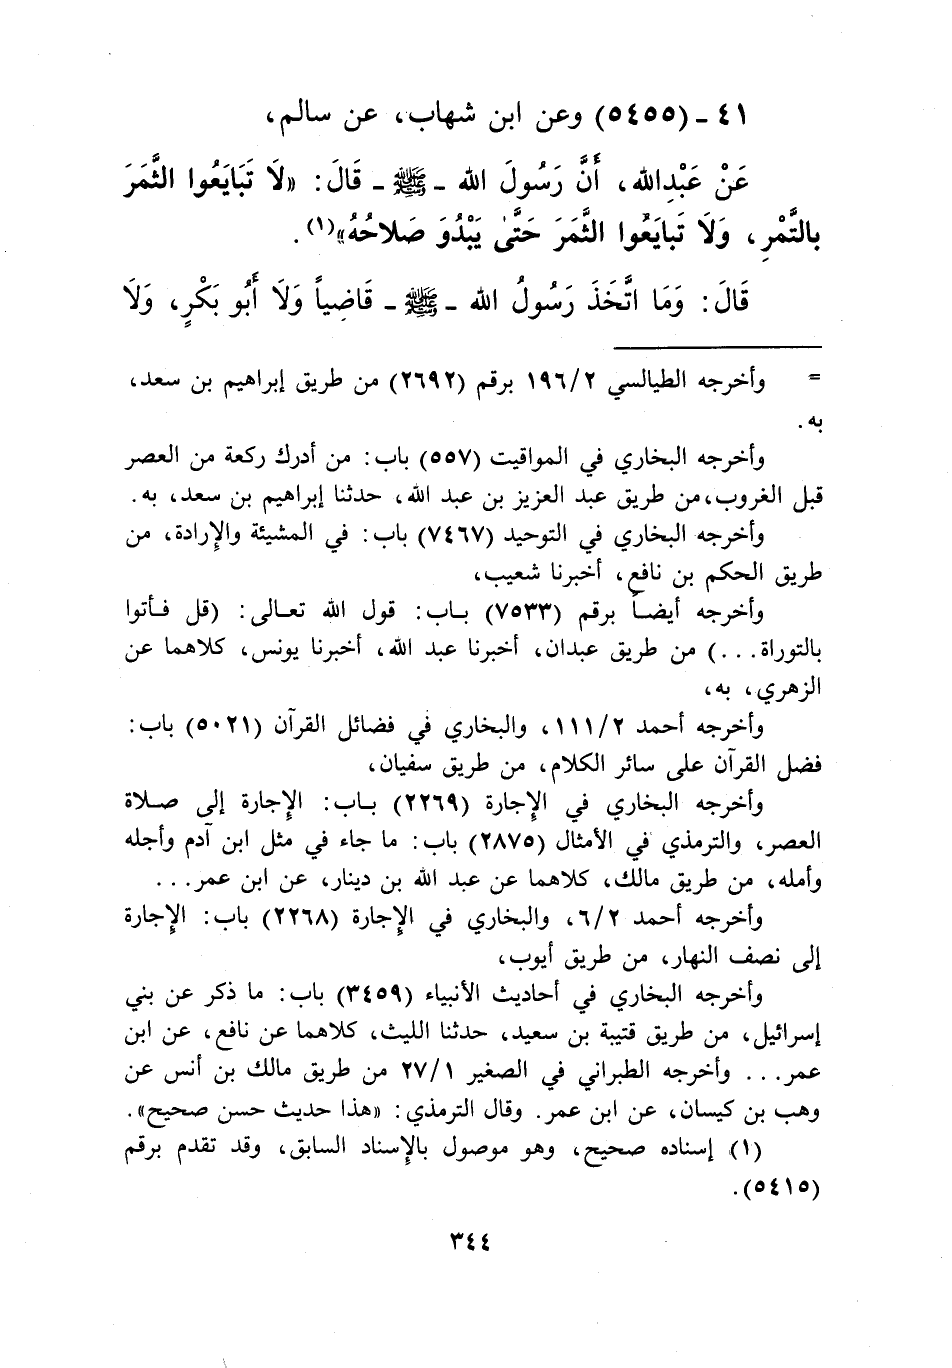 ٤١ - (٥٤٥٥) وعن ابن شهاب، عن سالم،
عَنْ عَبْدِالله، أَنَّ رَسُولَ الله - ﷺ - قَالَ: «لَا تَبَايَعُوا الثَّمَرَ
بِالتَّمْرِ، وَلَا تَبايَعُوا الثَّمَرَ حَتَّىٰ يَبْدُوَ صَلاحُهُ»(١).
قَالَ: وَمَا اتَّخَذَ رَسُولُ الله - ﷺ - قَاضِياً وَلَا أَبُو بَكْرٍ، وَلَا
= وأخرجه الطيالسي ١٩٦/٢ برقم (٢٦٩٢) من طريق إبراهيم بن سعد،
به.
وأخرجه البخاري في المواقيت (٥٥٧) باب: من أدرك ركعة من العصر
قبل الغروب،من طريق عبد العزيز بن عبد الله، حدثنا إبراهيم بن سعد، به.
وأخرجه البخاري في التوحيد (٧٤٦٧) باب: في المشيئة والإرادة، من
طريق الحكم بن نافع، أخبرنا شعيب،
وأخرجه أيضاً برقم (٧٥٣٣) باب: قول الله تعالى: (قل فأتوا
بالتوراة...) من طريق عبدان، أخبرنا عبد الله، أخبرنا يونس، كلاهما عن
الزهري، به،
وأخرجه أحمد ١١١/٢، والبخاري في فضائل القرآن (٥٠٢١) باب:
فضل القرآن على سائر الكلام، من طريق سفيان،
وأخرجه البخاري في الإجارة (٢٢٦٩) باب: الإجارة إلى صلاة
العصر، والترمذي في الأمثال (٢٨٧٥) باب: ما جاء في مثل ابن آدم وأجله
وأمله، من طريق مالك، كلاهما عن عبد الله بن دينار، عن ابن عمر...
وأخرجه أحمد ٦/٢، والبخاري في الإجارة (٢٢٦٨) باب: الإجارة
إلى نصف النهار، من طريق أيوب،
وأخرجه البخاري في أحاديث الأنبياء (٣٤٥٩) باب: ما ذكر عن بني
إسرائيل، من طريق قتيبة بن سعيد، حدثنا الليث، كلاهما عن نافع، عن ابن
عمر... وأخرجه الطبراني في الصغير ٢٧/١ من طريق مالك بن أنس عن
وهب بن كيسان، عن ابن عمر. وقال الترمذي: «هذا حديث حسن صحيح».
(١) إسناده صحيح، وهو موصول بالإسناد السابق، وقد تقدم برقم
(٥٤١٥).
٣٤٤